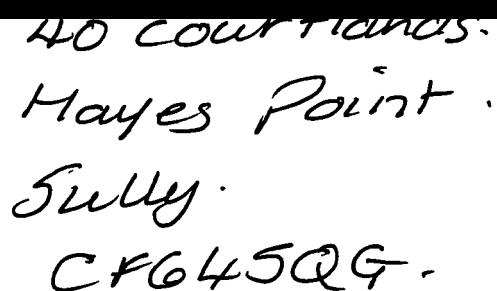 40 Courtlands.
Hayes Point.
Sully.
CF64 5QG.